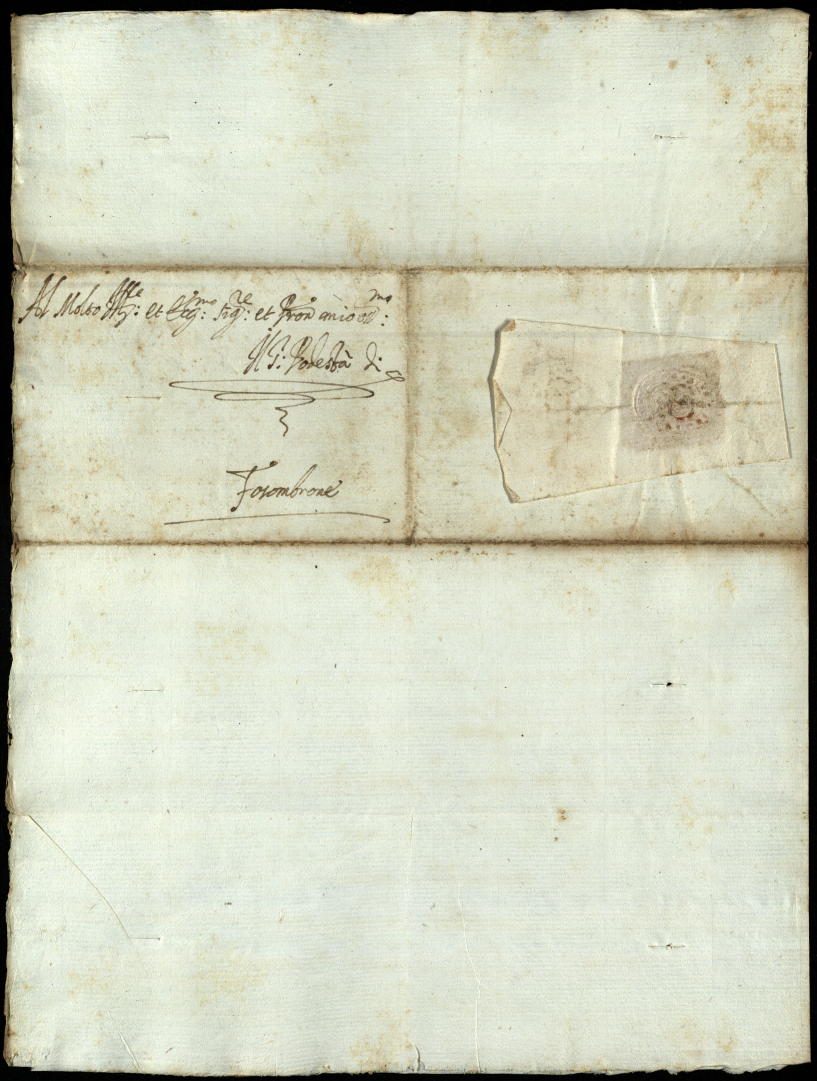 Al Molto Ill:re et Ecc:mo Sig:re et Pron mio oss:mo
Il S: Podestà di
Fosombrone